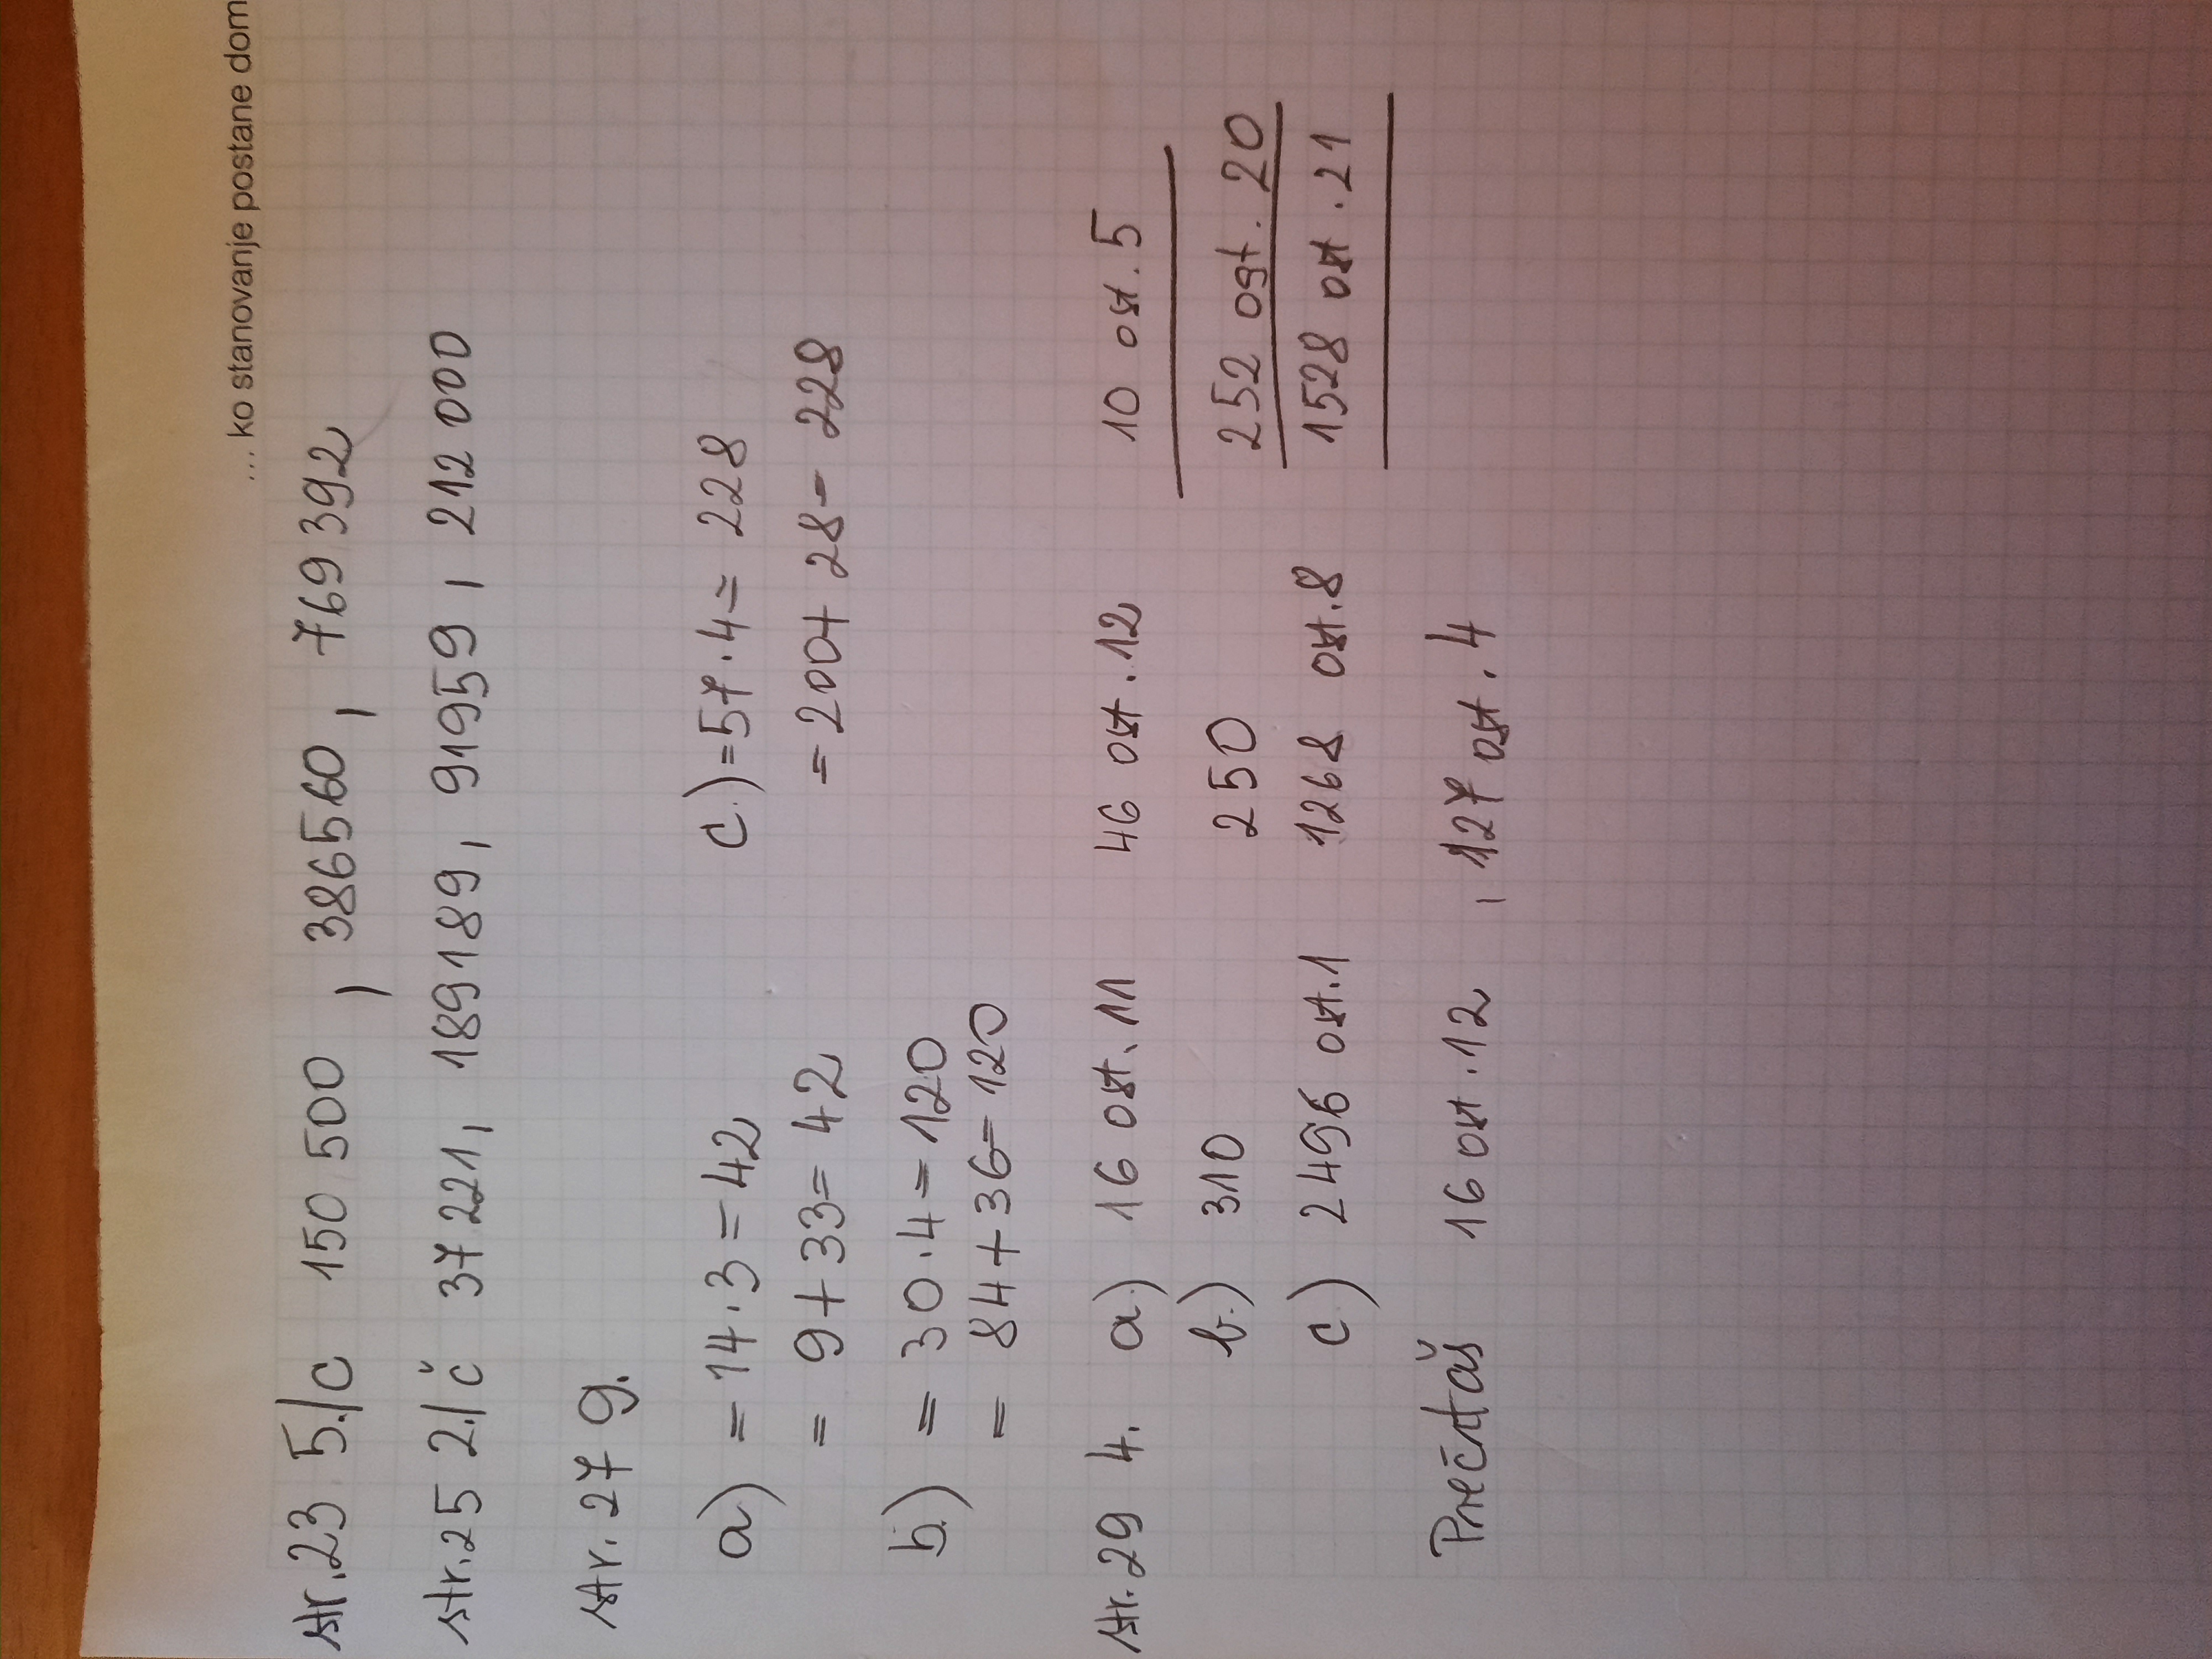 ... ko stanovanje postane dom
str.23 5./c 150 500 , 386560 , 769 392
str.25 2./č 37 221, 189189, 91959 , 212 000
str. 27 9.
a) = 14.3 = 42 c.) = 57.4 = 228
= 9 + 33 = 42 = 200 + 28 - 228
b.) = 30.4 = 120
= 84 + 36 - 120
str.29 4. a.) 16 ost. 11 46 ost. 12 10 ost. 5
b.) 310 250 252 ost. 20
c.) 2496 ost.1 1268 ost.8 1528 ost. 21
Prečrtaš 16 ost. 12 , 127 ost. 4